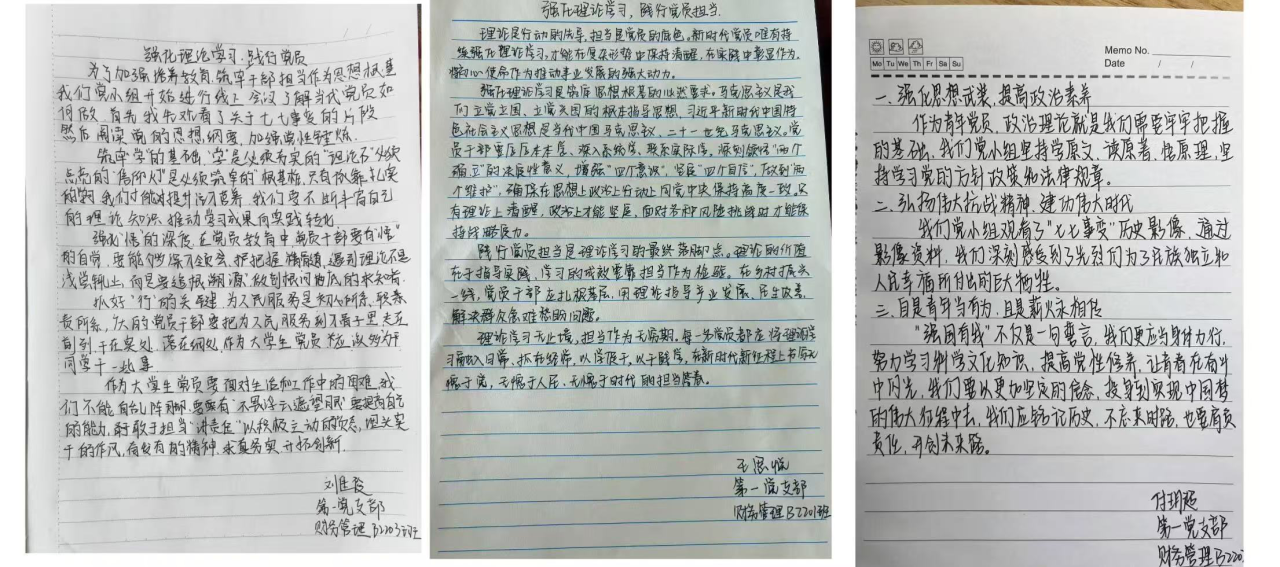 强化理论学习,践行党员
为了加强培养教育,筑牢干部担当作为思想根基
我们党小组开始进行线上会议了解当代党员如
何做,首先我先观看了关于七七事变的片段
然后阅读党的思想纲要,加强党性锤炼。
筑牢"学"的基础,"学"是必须夯实的"理论石"必须
点亮的"信仰灯"是必须筑牢的"根基桩,只有依靠扎实
的学习,我们才能提升活又善,我们要不断丰富自己
的理论知识,推动学习成果向实践转化
强化"悟"的深度,在党员教育中党员干部要有"悟"
的自觉,要能够深入领会,把握精髓,遇到理论不是
浅学辄止,而是要追根溯源"做到根问到底的求知者.
抓好"行"的关键,为人民服务是初心所在,职责
责所系,广大的党员干部要把为人民服务
自到,于在实处,落在细处,作为大学生党员,应该多为
同学干一些事
作为大学生党员要面对生活和工作中的困难,我
们不能自乱阵脚,要要有"不畏浮云遮望眼"要提高自己
的能力,敢于担当"讲责任"以积极主动的姿态,埋头实
干的作风,奋发有为的精神,求真务实,开拓创新.
第一党支部
财务管理B2203班
强化理论学习,践行党员担当.
理论是行动的先导,担当是党员的底色。新时代党员唯有持
续强化理论学习,才能在复杂形势中保持清醒,在实践中彰显作为,
将初心使命作为推动事业发展的强大动力。
强化理论学习是筑牢思想根基的必然要求。马克思主义是我
们立党立国、立党兴国的根本指导思想,习近平新时代中国特
色社会主义思想是当代中国马克思主义、二十一世纪马克思主义。党
员干部要原原本本学、深入系统学、联系实际学,深刻领悟"两个
确立"的决定性意义,增强"四个意识"、坚定"四个自信"、做到"两
个维护",确保在思想上政治上行动上同党中央保持高度一致,只
有理论上清醒,政治上才能坚定,面对各种风险挑战时才能保
持战略定力。
践行党员担当是理论学习的最终落脚点。理论的价值
在于指导实践,学习的成效要靠担当作为检验。在乡村振兴
一线,党员干部应扎根基层,用理论指导产业发展、民生改善,
解决群众急难愁盼问题。
理论学习无止境,担当作为无穷期。每一名党员都应将理论学
习融入日常、抓在经常,以学促干,以干践学,在新时代新征程上书写无
愧于党、无愧于人民、无愧于时代的担当答卷。
王思悦
第一党支部
财务管理B2201班
Memo No.
Mo Tu We Th Fr Sa Su
Date / /
一、强化思想武装,提高政治素养
作为青年党员,政治理论就是我们需要牢牢把握
的基础,我们党小组坚持学原文,读原著,悟原理,坚
持学习党的方针政策和法律规章。
二、弘扬伟大抗战精神,建功伟大时代
我们党小组观看了"七七事变"历史影像,通过
影像资料,我们深刻感受到了先烈们为了民族独立和
人民幸福所付出的巨大牺牲。
三、自是青年当有为,且是薪火永相传
"强国有我"不仅是一句誓言,我们更应当身体力行,
努力学习科学文化知识,提高党性修养,让青春在奋斗
中闪光,我们要以更加坚定的信念,投身到实现中国梦
的伟大征程中去,我们应铭记历史,不忘来时路,也要肩负
责任,开创未来路。
付玥超
第一党支部
财务管理B220